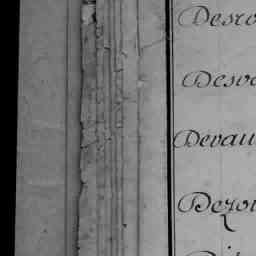 Desro
Desv
Devau
Dezo